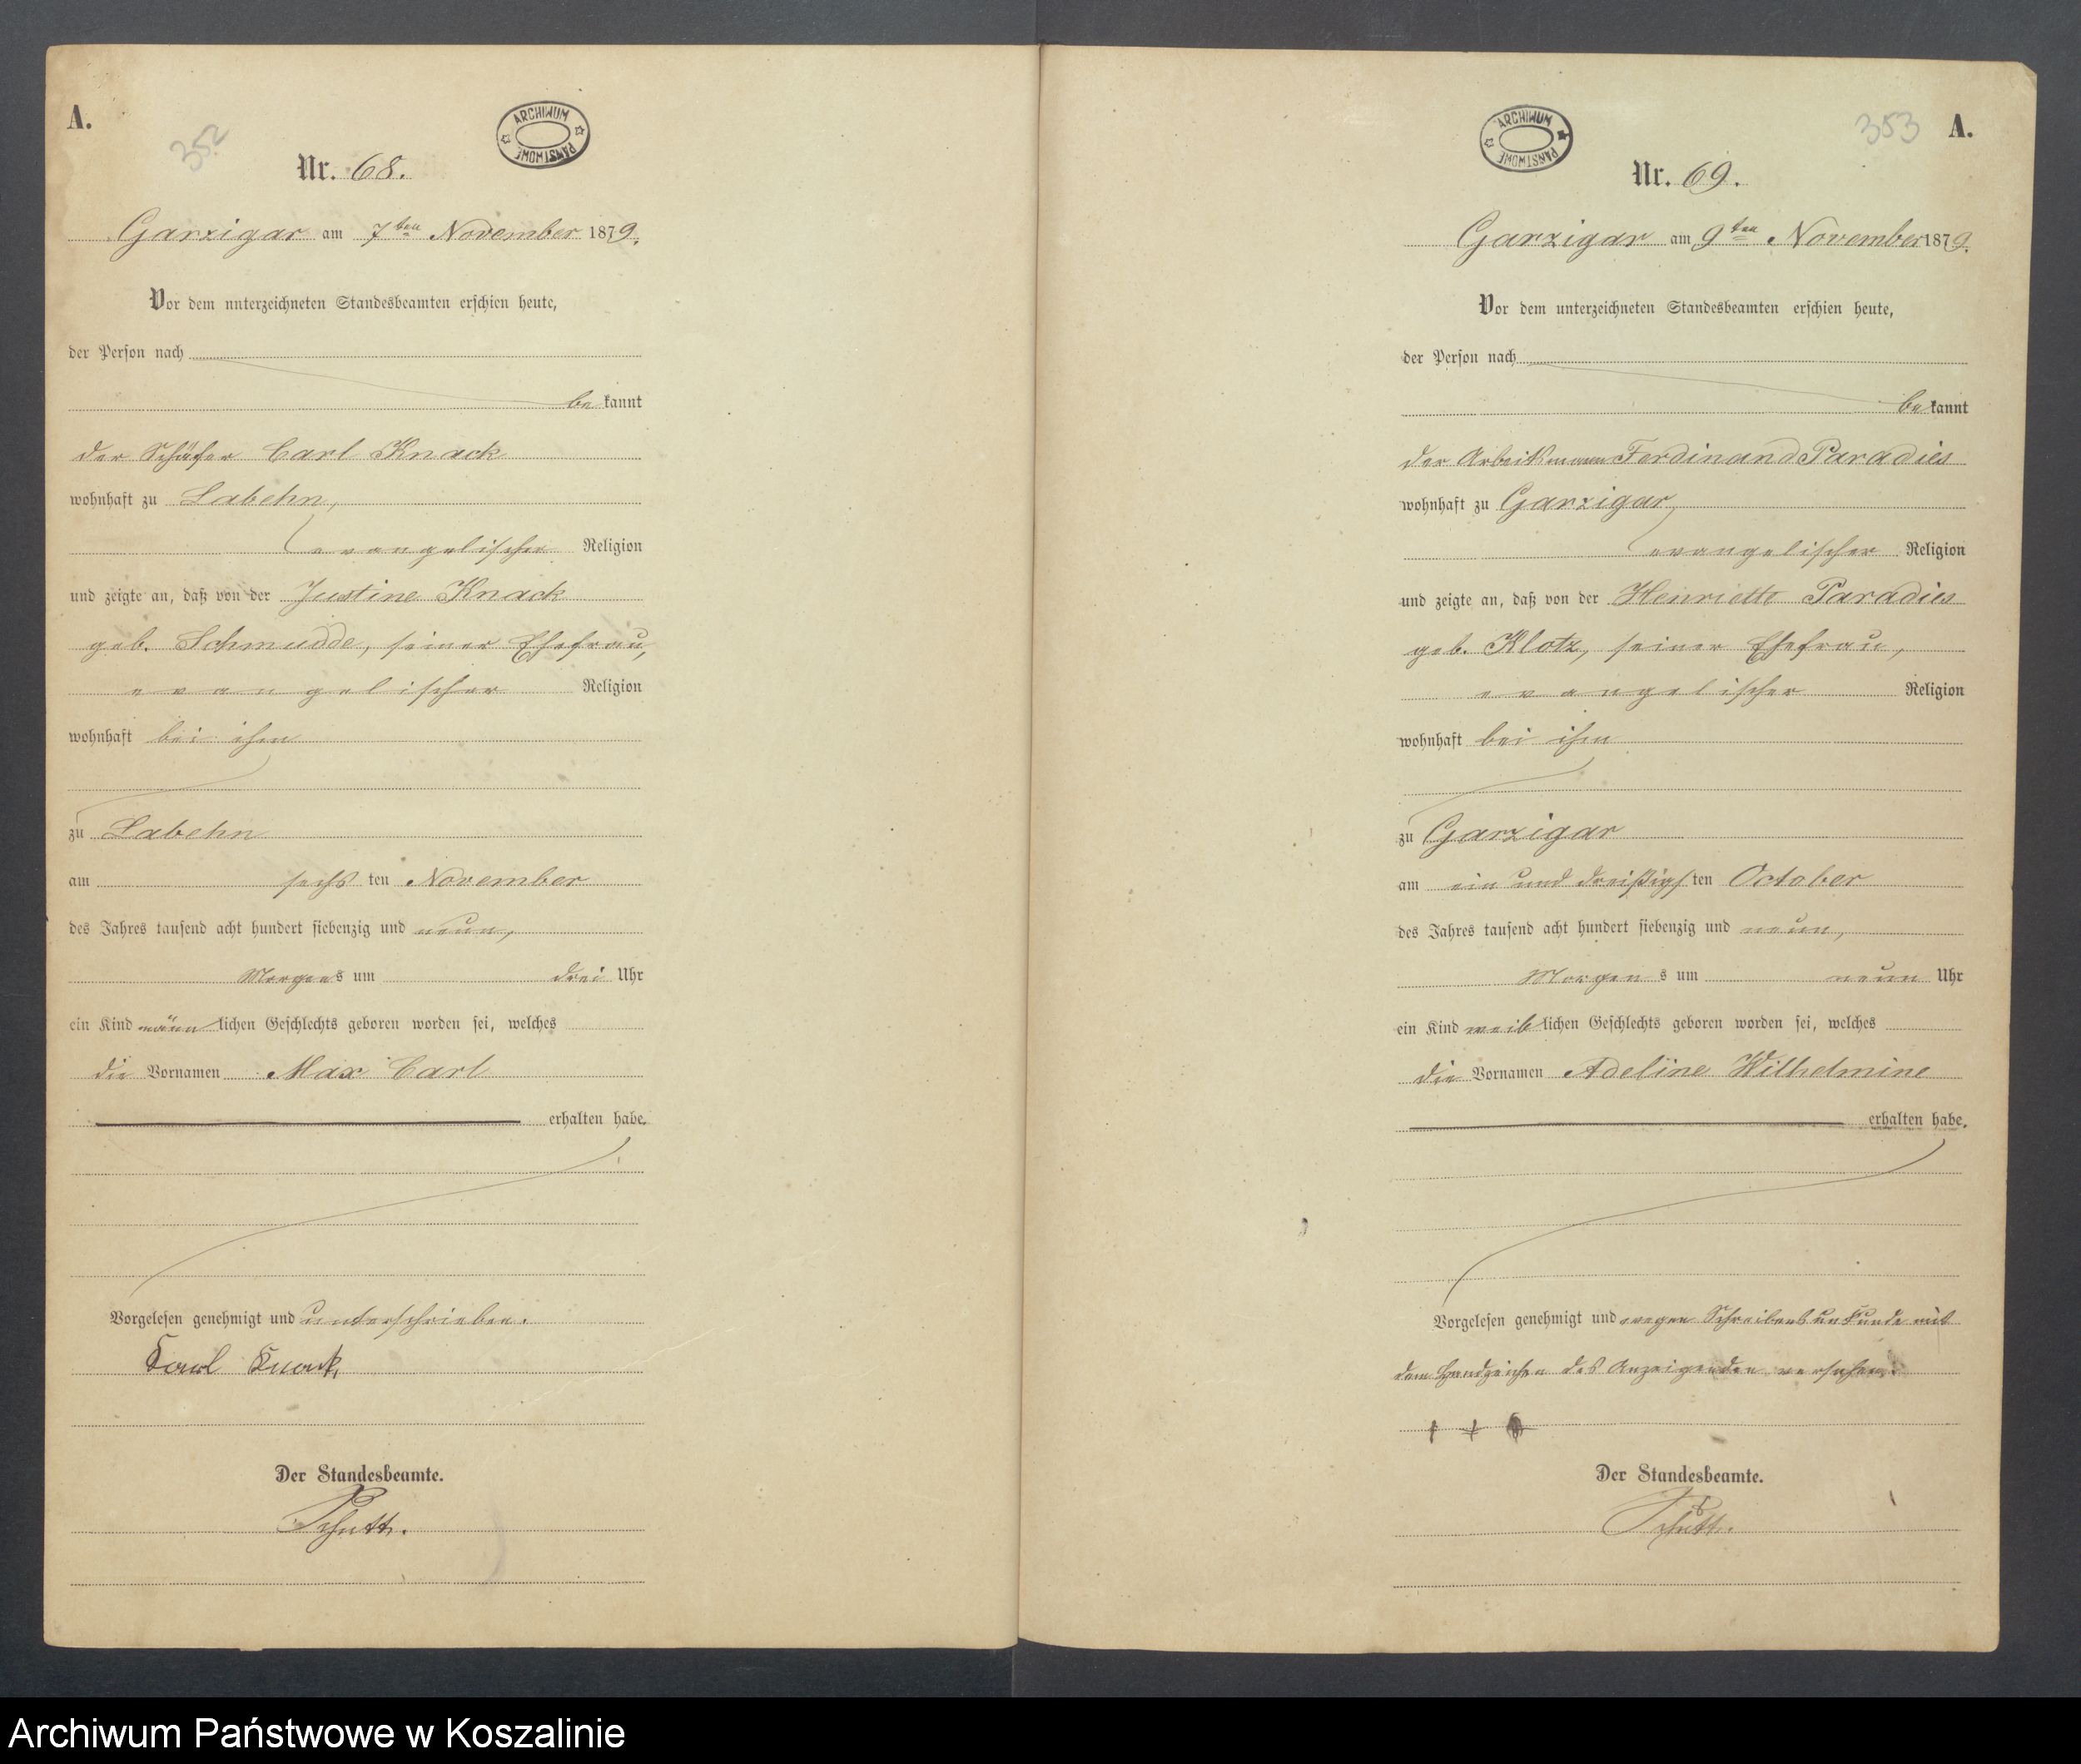 A.
352
ARCHIWUM PAŃSTWOWE
Nr. 68.
Garzigar am 7ten November 1879.
Vor dem unterzeichneten Standesbeamten erschien heute,
der Person nach
bekannt
der Schäfer Carl Knack
wohnhaft zu Labehn,
evangelischer Religion
und zeigte an, daß von der Justine Knack
geb. Schmudde, seiner Ehefrau,
evangelischer Religion
wohnhaft bei ihm
zu Labehn
am sechsten November
des Jahres tausend acht hundert siebenzig und neun,
Morgens um drei Uhr
ein Kind männlichen Geschlechts geboren worden sei, welches
die Vornamen Max Carl
erhalten habe.
Vorgelesen genehmigt und unterschrieben.
Karl Knack
Der Standesbeamte.
353
A.
ARCHIWUM PAŃSTWOWE
Nr. 69.
Garzigar am 9ten November 1879.
Vor dem unterzeichneten Standesbeamten erschien heute,
der Person nach
bekannt
der Arbeitsmann Ferdinand Paradies
wohnhaft zu Garzigar,
evangelischer Religion
und zeigte an, daß von der Henriette Paradies
geb. Klotz, seiner Ehefrau,
evangelischer Religion
wohnhaft bei ihm
zu Garzigar
am ein und dreißigsten October
des Jahres tausend acht hundert siebenzig und neun,
Morgens um neun Uhr
ein Kind weiblichen Geschlechts geboren worden sei, welches
die Vornamen Adeline Wilhelmine
erhalten habe.
Vorgelesen genehmigt und wegen Schreibensunkunde mit
dem Handzeichen des Anzeigenden versehen.
+ + +
Der Standesbeamte.
Archiwum Państwowe w Koszalinie